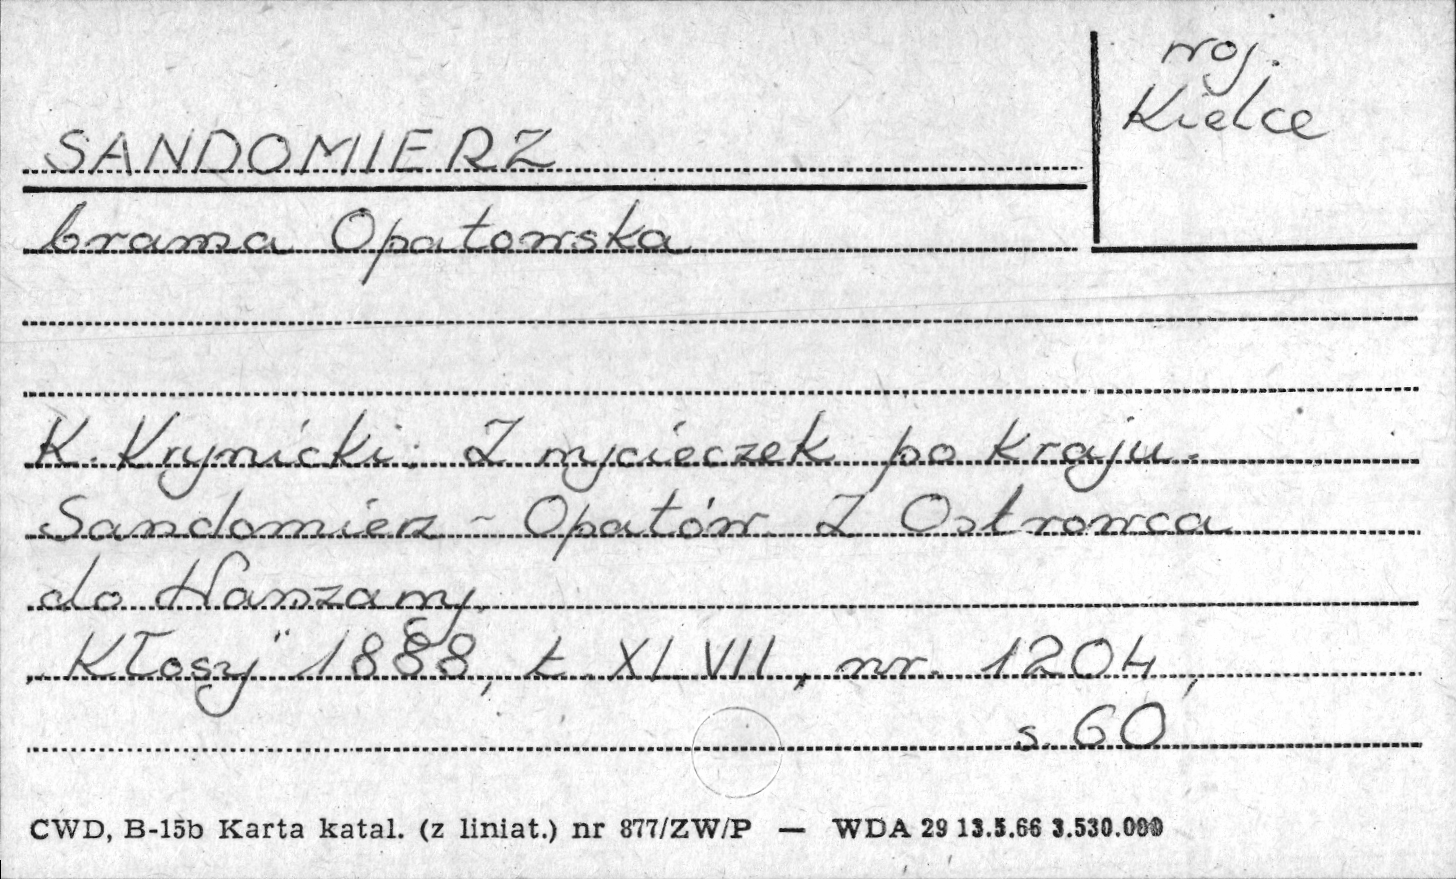 woj.
Kielce
SANDOMIERZ
brama Opatowska
K. Krynicki: Z wycieczek po kraju.
Sandomierz - Opatów. Z Ostrowca
do Warszawy.
„Kłosy" 1888, t. XLVII, nr. 1204,
s. 60
CWD, B-15b Karta katal. (z liniat.) nr 877/ZW/P — WDA 29 13.5.66 3.530.000